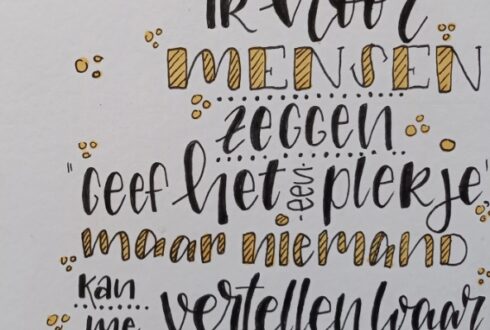 ik hoor
MENSEN
zeggen
"Geef het een plekje"
maar niemand
kan
me vertellen waar